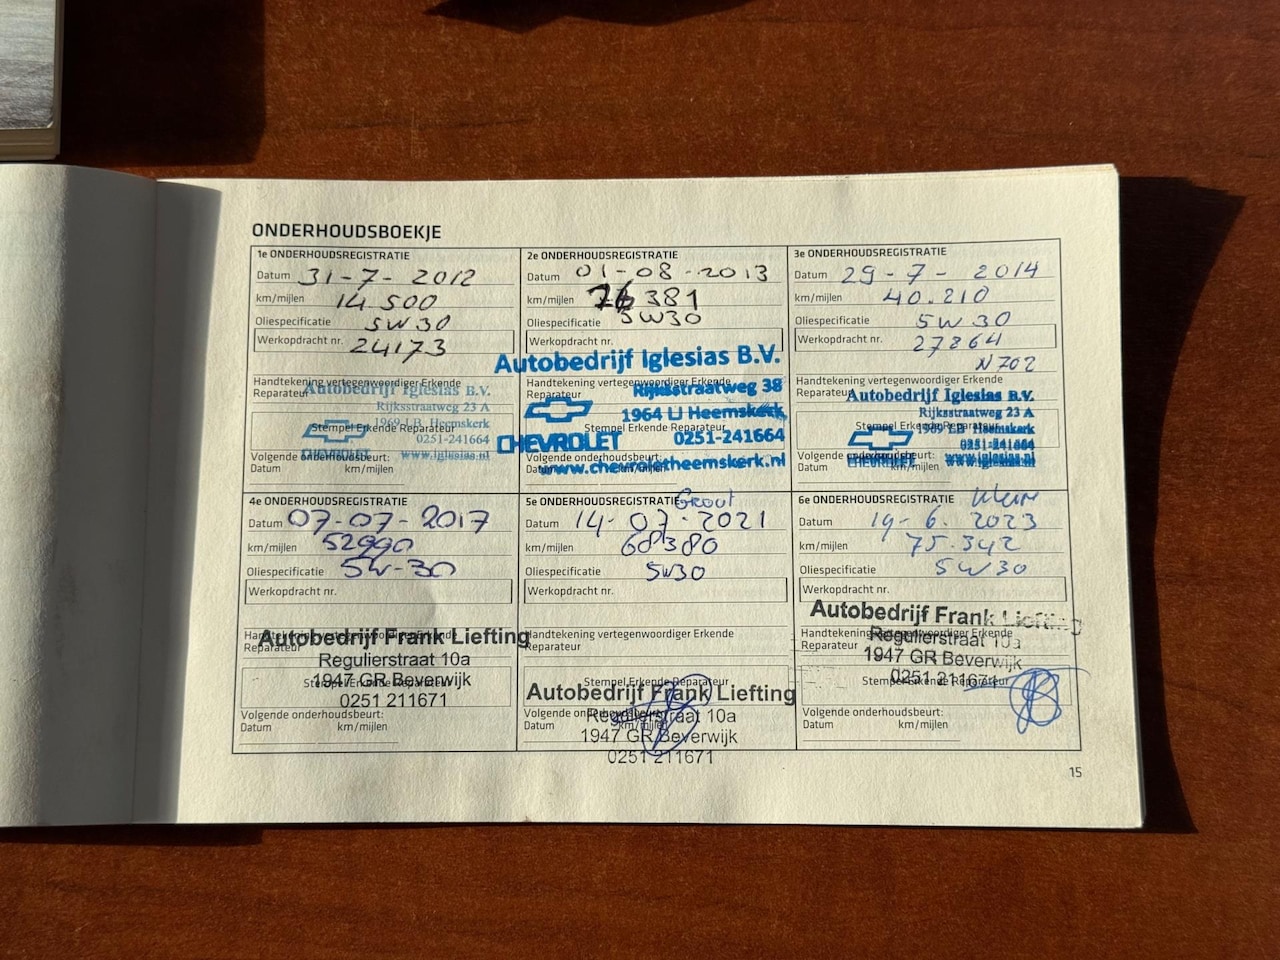 ONDERHOUDSBOEKJE
1e ONDERHOUDSREGISTRATIE
Datum 31-7-2012
km/mijlen 14.500
Oliespecificatie 5W30
Werkopdracht nr. 24173
Handtekening vertegenwoordiger Erkende
Reparateur
Autobedrijf Iglesias B.V.
Rijksstraatweg 23 A
1969 LB Heemskerk
Stempel Erkende Reparateur
0251-241664
CHEVROLET www.iglesias.nl
Volgende onderhoudsbeurt:
Datum km/mijlen
2e ONDERHOUDSREGISTRATIE
Datum 01-08-2013
km/mijlen 381
Oliespecificatie 5W30
Werkopdracht nr.
Autobedrijf Iglesias B.V.
Handtekening vertegenwoordiger Erkende
Reparateur
Rijksstraatweg 38
1964 LJ Heemskerk
Stempel Erkende Reparateur
CHEVROLET 0251-241664
Volgende onderhoudsbeurt:
www.chevroletheemskerk.nl
Datum km/mijlen
3e ONDERHOUDSREGISTRATIE
Datum 29-7-2014
km/mijlen 40.210
Oliespecificatie 5W30
Werkopdracht nr. 27864
N702
Handtekening vertegenwoordiger Erkende
Reparateur
Autobedrijf Iglesias B.V.
Rijksstraatweg 23 A
1969 LB Heemskerk
Stempel Erkende Reparateur
0251-241664
CHEVROLET www.iglesias.nl
Volgende onderhoudsbeurt:
Datum km/mijlen
4e ONDERHOUDSREGISTRATIE
Datum 07-07-2017
km/mijlen 52990
Oliespecificatie 5W-30
Werkopdracht nr.
Handtekening vertegenwoordiger Erkende
Reparateur
Autobedrijf Frank Liefting
Regulierstraat 10a
1947 GR Beverwijk
Stempel Erkende Reparateur
0251 211671
Volgende onderhoudsbeurt:
Datum km/mijlen
5e ONDERHOUDSREGISTRATIE Groot
Datum 14-07-2021
km/mijlen 68380
Oliespecificatie 5W30
Werkopdracht nr.
Handtekening vertegenwoordiger Erkende
Reparateur
Stempel Erkende Reparateur
Autobedrijf Frank Liefting
Volgende onderhoudsbeurt:
Regulierstraat 10a
Datum km/mijlen
1947 GR Beverwijk
0251 211671
6e ONDERHOUDSREGISTRATIE Klein
Datum 19-6.2023
km/mijlen 75.342
Oliespecificatie 5W30
Werkopdracht nr.
Autobedrijf Frank Liefting
Handtekening vertegenwoordiger Erkende
Reparateur
Regulierstraat 10a
1947 GR Beverwijk
Stempel Erkende Reparateur
0251 211671
Volgende onderhoudsbeurt:
Datum km/mijlen
15